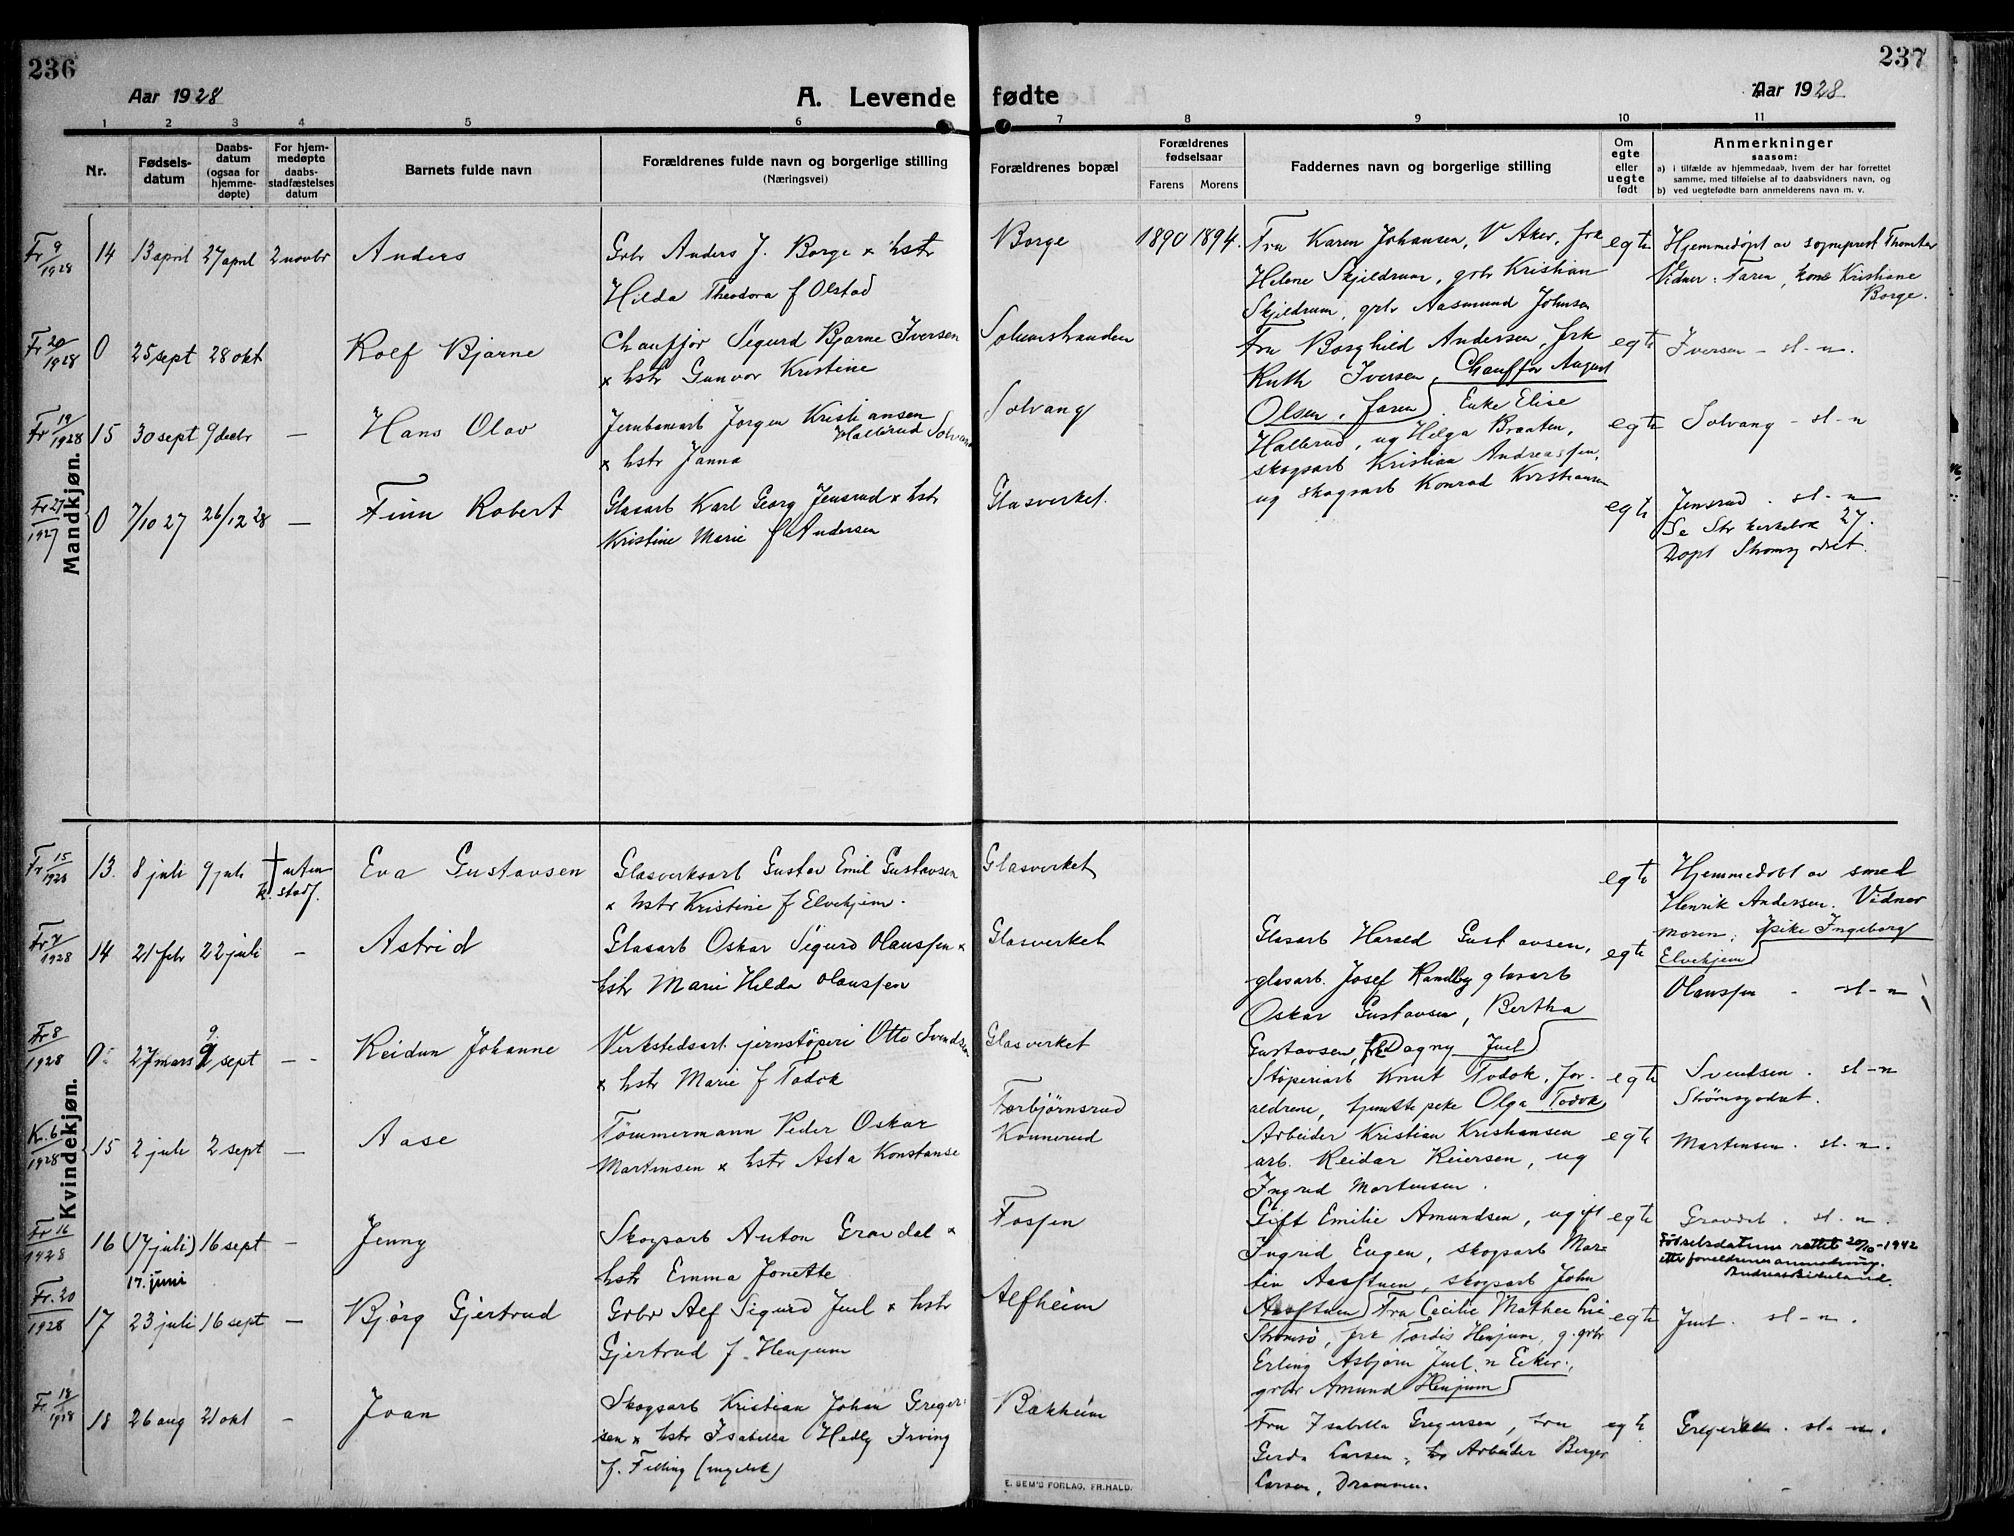 236
237
Aar 1928
A. Levende fødte
Aar 1928
1 2 3 4 5 6 7 8 9 10 11
Nr.
Fødsels-
datum
Daabs-
datum
(ogsaa for
hjemme-
døpte)
For hjem-
medøpte
daabs-
stadfæstelses
datum
Barnets fulde navn
Forældrenes fulde navn og borgerlige stilling
(Næringsvei)
Forældrenes bopæl
Forældrenes
fødselsaar
Farens Morens
Faddernes navn og borgerlige stilling
Om
egte
eller
uegte
født
Anmerkninger
saasom:
a) i tilfælde av hjemmedaab, hvem der har forrettet
samme, med tilføielse af to daabsvidners navn, og
b) ved uegtefødte barn anmelderens navn m. v.
Mandkjøn.
Fr 9/1928 14 13 april 27 april 2 novbr Anders
Gbr Anders J. Borge x hstr
Hilda Theodora f Olstad
Borge 1890 1894.
Fru Karen Johansen, V Aker, frk
Helene Skjeldrum, grbr Kristian
Skjeldrum, grbr Aasmund Johnsen
egte
Hjemmedøpt av sogneprest Thomter
Vidner: Faren, kone Kristiane
Borge.
Fr 20/1928 0 25 sept 28 okt Rolf Bjarne
Chauffør Sigurd Bjarne Iversen
x hstr Gunvor Kristine
Solumstranden
Fru Borghild Andersen, frk
Ruth Iversen, Chauffør August
Olsen, faren
egte
Iversen - st - n.
Fr 19/1928 15 30 sept 9 decbr — Hans Olav
Jernbanearb Jørgen Kristiansen
Hallerud Solvang
x hstr Janna
Solvang
Enke Elise
Hallerud, ug Helga Braaten,
skogsarb Kristian Andreassen,
ug skogsarb Konrad Kristiansen
egte
Solvang - st - n
Fr 27/1927 0 7/10 27 26/12 28 — Finn Robert
Glasarb Karl Georg Jensrud x hstr
Kristine Marie f Andersen
Glasverket.
egte
Jensrud. st - n
Se Str kirkebok 27.
Døpt Strømsgodset.
Kvindekjøn.
Fr 15/1928 13. 8 juli 9 juli † uten
k. stadf.
Eva Gustavsen
Glasverksarb Gustav Emil Gustavsen
x hstr Kristine f Elvehjem.
Glasverket
egte
Hjemmedøbt av smed
Henrik Andersen. Vidner
moren, pike Ingeborg
Elvehjem
Fr 7/1928 14 21 febr 22 juli - Astrid
Glasarb Oskar Sigurd Olaussen x
hstr Marie Hilda Olaussen
Glasverket
Glasarb Harald Gustavsen,
glasarb. Josef Randby glasarb
Oskar Gustavsen, Bertha
Gustavsen, frk Dagny Juel
egte
Olaussen - st - n
Fr 8/1928 0 27 mars 9 sept - - Reidun Johanne
Verkstedsarb jernstøperi Otto Svendsen
x hstr Marie f Todok
Glasverket
Støperiarb Knut Todok, for-
ældrene, tjenstepike Olga Todok
egte
Svendsen. st - n
Strømsgodset.
K. 6/1928 15 2 juli 2 sept — Aase
Tømmermann Peder Oskar
Martinsen x hstr Asta Konstanse
Torbjørnsrud
Konnerud
Arbeider Kristian Kristiansen
arb. Reidar Reiersen, ug
Ingrid Martensen.
egte
Martensen. st - n.
Fr 16/1928 16 (17 juli) 16 sept — Jenny
17. juni
Skogsarb Anton Gravdal x
hstr Emma Jonette
Fossen
Gift Emilie Amundsen, ugift
Ingrid Eugen, skogsarb Mar-
tin Aasstuen, skogsarb John
Aasstuen
egte
Gravdal. st. n.
Fødselsdatum rettet 20/10-1942
etter foreldrenes anmodning.
Andreas Birkeland.
Fr. 20/1928 17 23 juli 16 sept — Bjørg Gjertrud
Grbr Alf Sigurd Juel x hstr
Gjertrud f. Henjum
Alfheim
Fru Cecilie Mathea Lie
Strømsø, frk Tordis Henjum, g. grbr
Erling Asbjørn Juel n Eeker,
grbr Amund Henjum
egte
Juel. st - n.
Fr. 18/1928 18 26 aug 21 okt - Joan
Skogsarb Kristian Johan Greger-
sen x hstr Isabella Hedly Irving
f. Filling (engelsk)
Bakheim
Fru Isabella Gregersen, fru
Gerda Larsen, Arbeider Berger
Larsen, Drammen.
egte
Gregersen. st. n.
E. SEM'S FORLAG, FR.HALD.